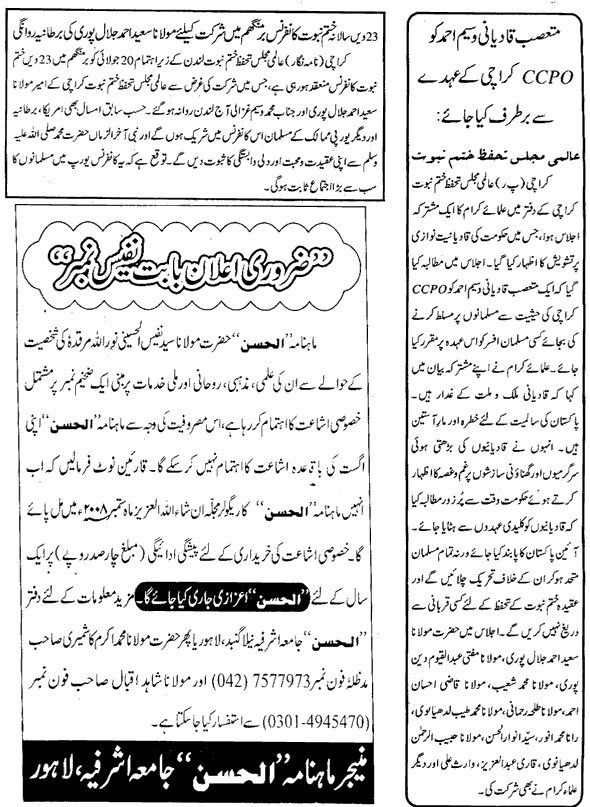 متعصب قادیانی وسیم احمد کو
CCPO کراچی کے عہدے
سے برطرف کیا جائے:
عالمی مجلس تحفظ ختم نبوت
کراچی (پ ر) عالمی مجلس تحفظ ختم نبوت
کراچی کے دفتر میں علمائے کرام کا ایک مشترکہ
اجلاس ہوا، جس میں حکومت کی قادیانیت نوازی
پر تشویش کا اظہار کیا گیا۔ اجلاس میں مطالبہ کیا
گیا کہ ایک متعصب قادیانی وسیم احمد کو CCPO
کراچی کی حیثیت سے مسلمانوں پر مسلط کرنے
کی بجائے کسی مسلمان افسر کو اس عہدہ پر مقرر کیا
جائے۔ علمائے کرام نے اپنے مشترکہ بیان میں
کہا کہ قادیانی ملک و ملت کے غدار ہیں۔
پاکستان کی سالمیت کے لئے خطرہ اور مار آستین
ہیں۔ انہوں نے قادیانیوں کی بڑھتی ہوئی
سرگرمیوں اور گھناؤنی سازشوں پر غم و غصہ کا اظہار
کرتے ہوئے حکومت وقت سے پُرزور مطالبہ کیا
کہ قادیانیوں کو کلیدی عہدوں سے ہٹایا جائے۔
آئین پاکستان کا پابند کیا جائے ورنہ تمام مسلمان
متحد ہو کر ان کے خلاف تحریک چلائیں گے اور
عقیدہ ختم نبوت کے تحفظ کے لئے کسی قربانی سے
دریغ نہیں کریں گے۔ اجلاس میں مولانا
سعید احمد جلال پوری، مولانا مفتی عبدالقیوم دین
پوری، مولانا محمد شعیب، مولانا قاضی احسان
احمد، مولانا طلحہ رحمانی، مولانا محمد طیب لدھیانوی،
رانا محمد انور، سیّد انوار الحسن، مولانا حبیب الرحمٰن
لدھیانوی، قاری عبدالعزیز، وارث علی اور دیگر
علماء کرام نے بھی شرکت کی۔
23 ویں سالانہ ختم نبوت کانفرنس برمنگھم میں شرکت کیلئے مولانا سعید احمد جلال پوری کی برطانیہ روانگی
کراچی (نامہ نگار) عالمی مجلس تحفظ ختم نبوت لندن کے زیر اہتمام 20 جولائی کو برمنگھم میں 23 ویں ختم
نبوت کانفرنس منعقد ہورہی ہے، جس میں شرکت کی غرض سے عالمی مجلس تحفظ ختم نبوت کراچی کے امیر مولانا
سعید احمد جلال پوری اور جناب محمد وسیم غزالی آج لندن روانہ ہو گئے۔ حسب سابق امسال بھی امریکا، برطانیہ
اور دیگر یورپی ممالک کے مسلمان اس کانفرنس میں شریک ہوں گے اور نبی آخر الزماں حضرت محمد صلی اللہ علیہ
وسلم سے اپنی عقیدت و محبت اور دلی وابستگی کا ثبوت دیں گے۔ توقع ہے کہ یہ کانفرنس یورپ میں مسلمانوں کا
سب سے بڑا اجتماع ثابت ہوگی۔
”ضروری اعلان بابت نفیس نمبر“
ماہنامہ ”الحسن“ حضرت مولانا سید نفیس الحسینی نور اللہ مرقدہٗ کی شخصیت
کے حوالے سے ان کی علمی، مذہبی، روحانی اور ملی خدمات پر مبنی ایک ضخیم نمبر پر مشتمل
خصوصی اشاعت کا اہتمام کر رہا ہے، اس مصروفیت کی وجہ سے ماہنامہ ”الحسن“ اپنی
اگست کی باقاعدہ اشاعت کا اہتمام نہیں کر سکے گا۔ قارئین نوٹ فرمالیں کہ اب
انہیں ماہنامہ ”الحسن“ کا ریگولر مجلّہ ان شاء اللہ العزیز ماہ ستمبر ۲۰۰۸ء میں مل پائے
گا۔ خصوصی اشاعت کی خریداری کے لئے پیشگی ادائیگی (مبلغ چار صد روپے) پر ایک
سال کے لئے ”الحسن“ اعزازی جاری کیا جائے گا۔ مزید معلومات کے لئے دفتر
”الحسن“ جامعہ اشرفیہ نیلا گنبد، لاہور یا پھر حضرت مولانا محمد اکرم کاشمیری صاحب
مدظلہٗ فون نمبر 7577973 (042) اور مولانا شاہد اقبال صاحب فون نمبر
(0301-4945470) سے استفسار کیا جا سکتا ہے۔
منیجر ماہنامہ ”الحسن“ جامعہ اشرفیہ، لاہور